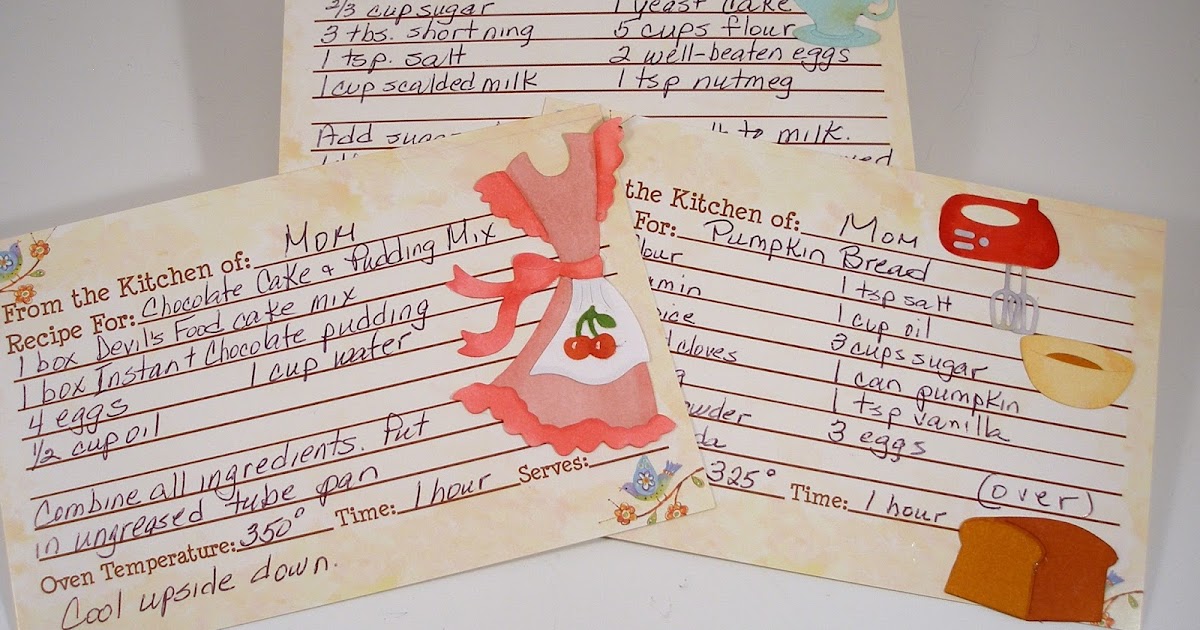 2/3 cup sugar 1 yeast cake
3 tbs. shortning 5 cups flour
1 tsp. salt 2 well-beaten eggs
1 cup scalded milk 1 tsp nutmeg
Add to milk.
From the Kitchen of: Mom
Recipe For: Chocolate Cake & Pudding Mix
1 box Devil's Food cake mix
1 box Instant Chocolate pudding
4 eggs 1 cup water
1/2 cup oil
Combine all ingredients. Put
in ungreased tube pan
Oven Temperature: 350° Time: 1 hour Serves:
Cool upside down.
the Kitchen of: Mom
For: Pumpkin Bread
1 tsp salt
1 cup oil
cloves 3 cups sugar
1 can pumpkin
1 tsp vanilla
3 eggs
(over)
325° Time: 1 hour